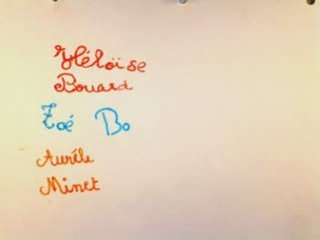 Héloïse
Bouard
Zoé Bo
Aurélie
Minet